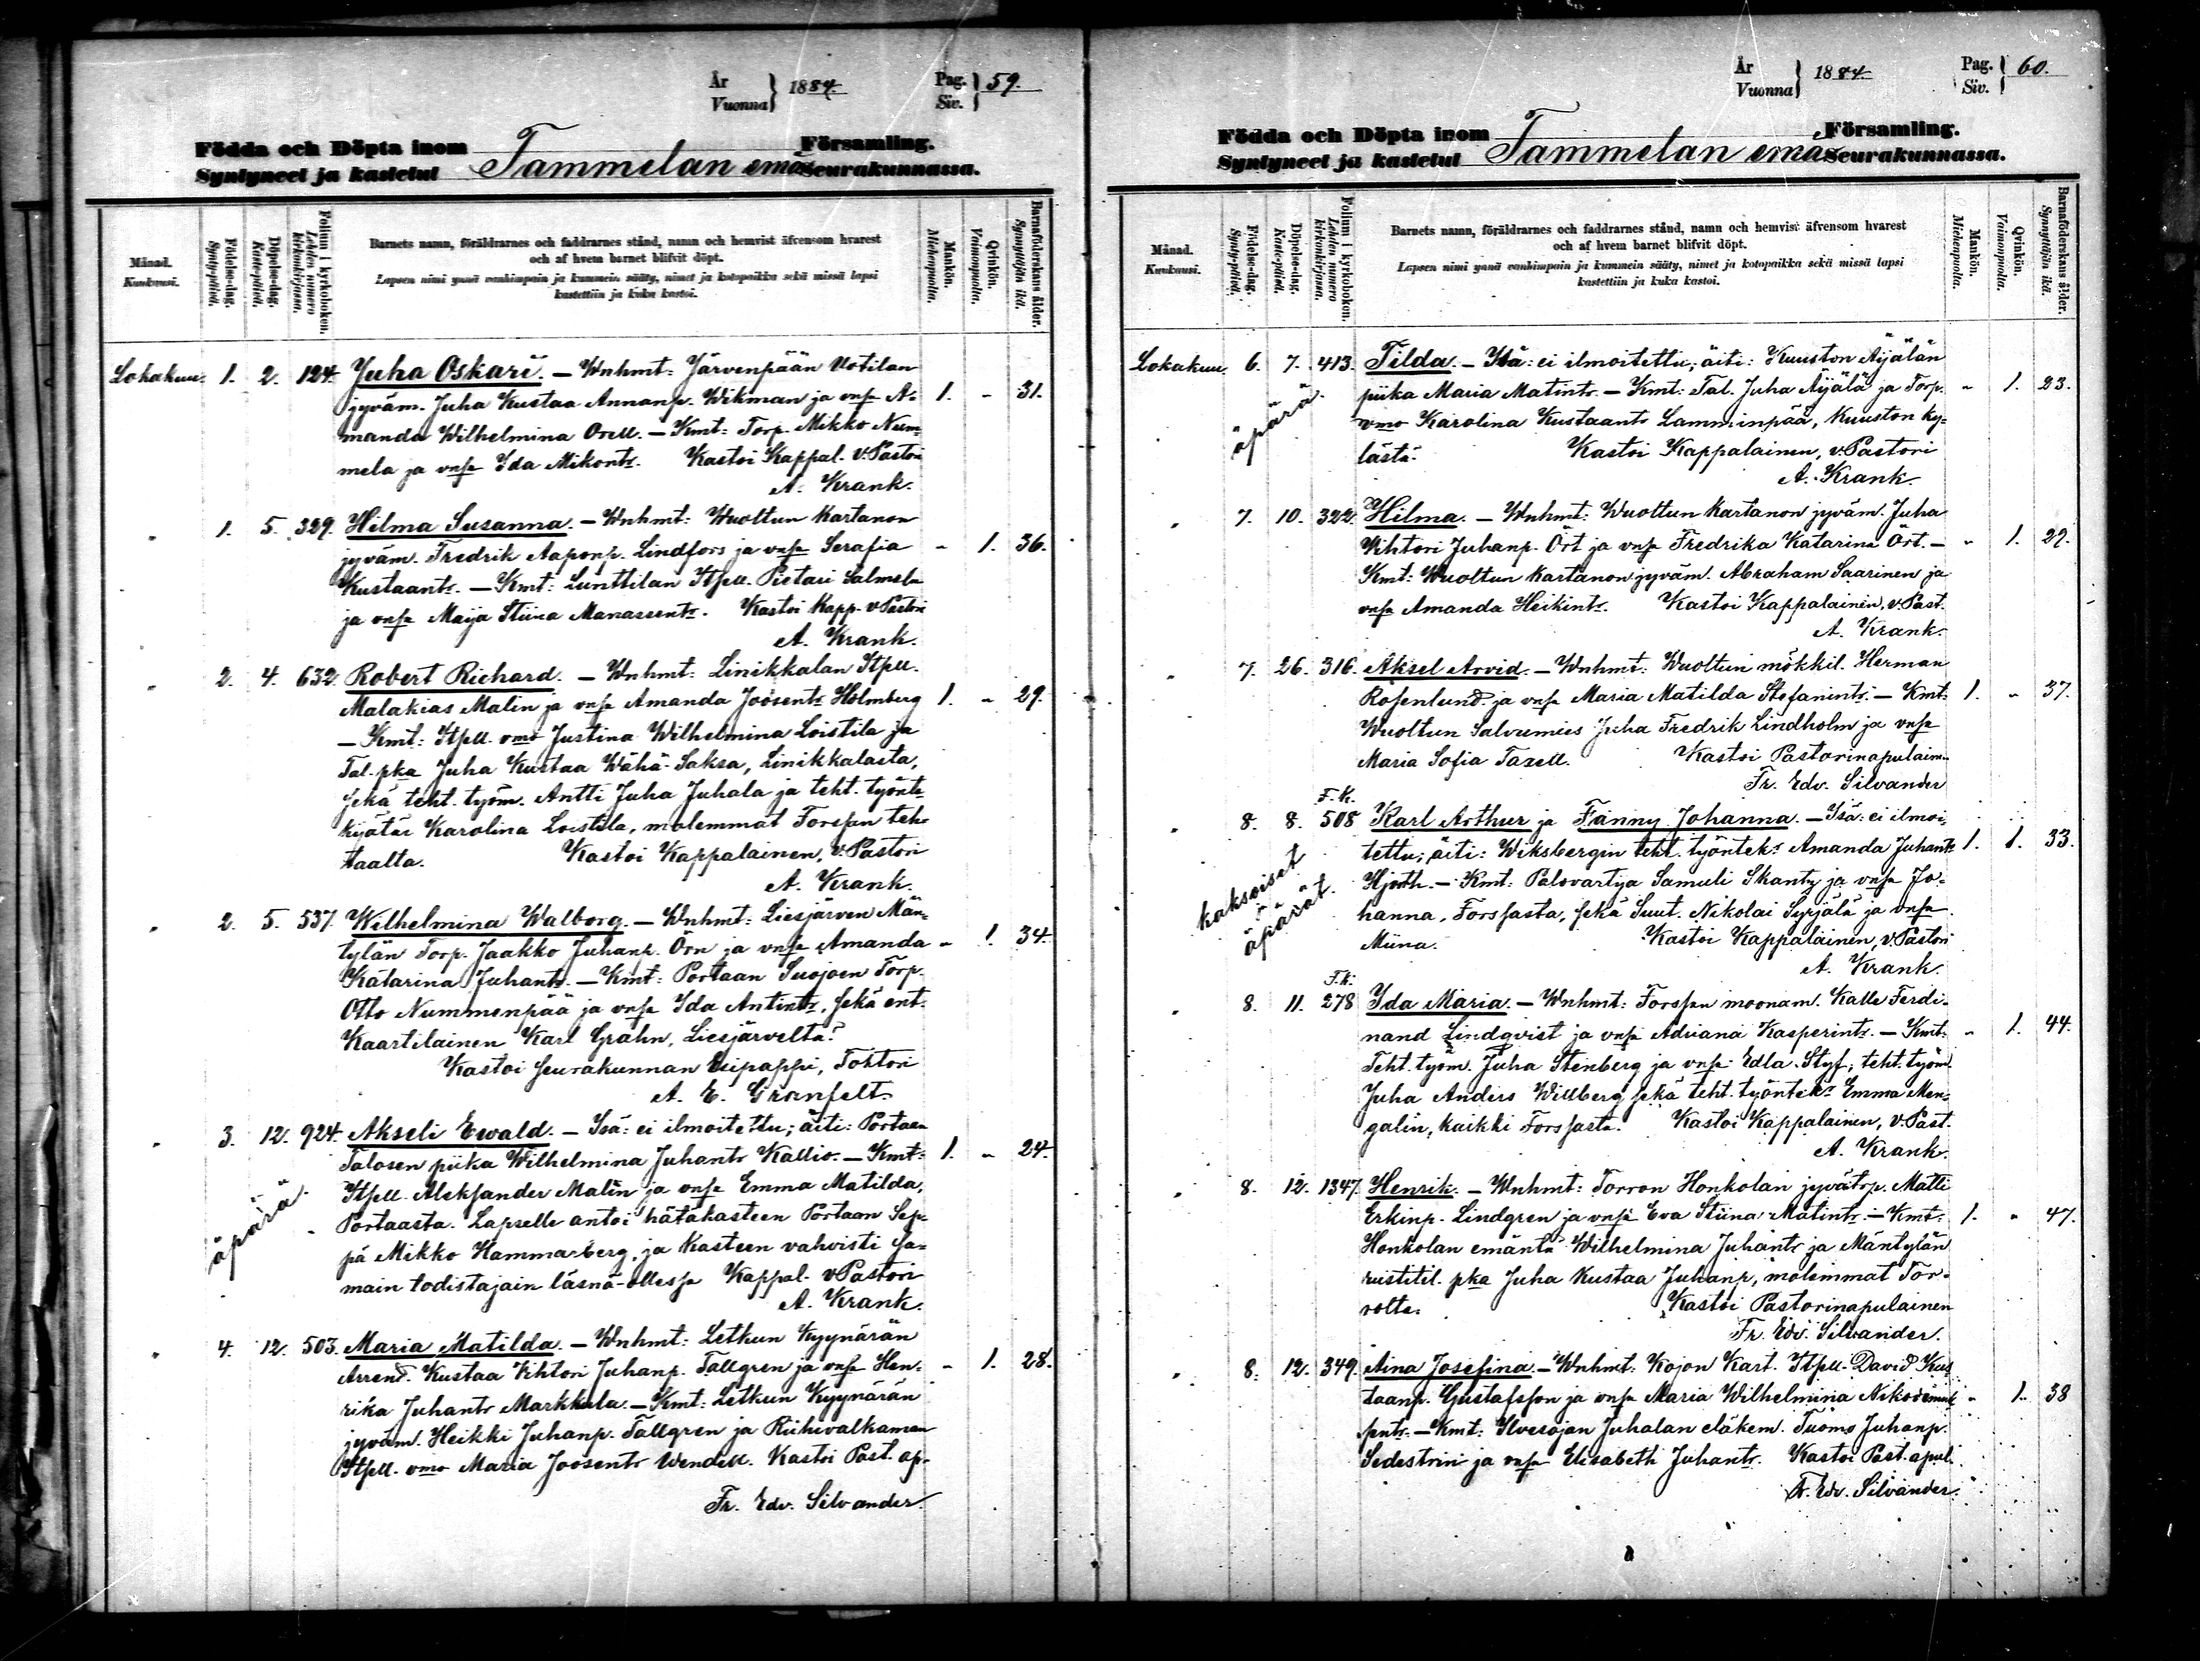 År
Vuonna } 1884. Pag.
Siv. } 59.
Födda och Döpta inom Församling.
Syntyneet ja kastetut Tammelan emä Seurakunnassa.
Månad.
Kuukausi.
Födelse-dag.
Synty-päivä.
Döpelse-dag.
Kaste-päivä.
Folium i kyrkoboken.
Lehden numero kirkonkirjassa.
Barnets namn, föräldrarnes och faddrarnes stånd, namn och hemvist äfvensom hvarest
och af hvem barnet blifvit döpt.
Lapsen nimi ynnä vanhimpain ja kummein sääty, nimet ja kotopaikka sekä missä lapsi
kastettiin ja kuka kastoi.
Mankön.
Miehenpuolia.
Qvinkön.
Vaimonpuolia.
Barnaföderskans ålder.
Synnyttäjän ikä.
Lokakuu. 1. 2. 124. Juha Oskari. – Wnhmt: Järvenpään Uotilan
jyväm. Juha Kustaa Annanp. Wikman ja vnsa A- 1. - 31.
manda Wilhelmina Orell. – Kmt: Torp. Mikko Num-
mela ja vnsa Ida Mikontr. Kastoi Kappal. v. Pastori
A. Krank.
" 1. 5. 329. Hilma Susanna. – Wnhmt: Wuoltun Kartanon
jyväm. Fredrik Aaponp. Lindfors ja vnsa Serafia - 1. 36.
Kustaantr. – Kmt: Lunttilan Itsell. Pietari Salmela
ja vnsa Maija Stiina Manassentr. Kastoi Kapp. v. Pastori
A. Krank.
" 2. 4. 632. Robert Richard. – Wnhmt: Linikkalan Itsell.
Malakias Malin ja vnsa Amanda Joosentr Holmberg 1. - 29.
– Kmt: Itsell. vmo Justina Wilhelmina Loistila ja
Tal. pka Juha Kustaa Wähä-Saksa, Linikkalasta,
sekä teht. työm. Antti Juha Juhala ja teht. työnte-
kijätär Karolina Loistila, molemmat Forssan teh-
taalta. Kastoi Kappalainen, v. Pastori
A. Krank.
" 2. 5. 537. Wilhelmina Walborg. – Wnhmt: Liesjärven Män-
tylän Torp. Jaakko Juhanp. Örn ja vnsa Amanda - 1. 34.
Katarina Juhantr. – Kmt: Portaan Suojoen Torp.
Otto Nummenpää ja vnsa Ida Antintr, sekä ent.
Kaartilainen Karl Grahn, Liesjärveltä.
Kastoi seurakunnan Esipappi, Tohtori
A. E. Granfelt.
" 3. 12. 924. Akseli Ewald. – Isä: ei ilmoitettu; äiti: Portaan
Talosen piika Wilhelmina Juhantr Kallio. – Kmt: 1. - 24.
Itsell. Aleksander Malin ja vnsa Emma Matilda,
äpärä. Portaasta. Lapselle antoi hätäkasteen Portaan Sep-
pä Mikko Hammarberg, ja Kasteen vahvisti sa-
main todistajain läsnä-ollessa Kappal. v. Pastori
A. Krank.
" 4. 12. 503. Maria Matilda. – Wnhmt: Letkun Kyynärän
Arrend. Kustaa Vihtori Juhanp. Tallgren ja vnsa Hen- - 1. 28.
rika Juhantr Markkula. – Kmt: Letkun Kyynärän
jyväm. Heikki Juhanp. Tallgren ja Riihivalkaman
Itsell. vmo Maria Joosentr Wendell. Kastoi Past. ap.
Fr. Edv. Silvander.
År
Vuonna } 1884. Pag.
Siv. } 60.
Födda och Döpta inom Församling.
Syntyneet ja kastetut Tammelan emä Seurakunnassa.
Månad.
Kuukausi.
Födelse-dag.
Synty-päivä.
Döpelse-dag.
Kaste-päivä.
Folium i kyrkoboken.
Lehden numero kirkonkirjassa.
Barnets namn, föräldrarnes och faddrarnes stånd, namn och hemvist äfvensom hvarest
och af hvem barnet blifvit döpt.
Lapsen nimi ynnä vanhimpain ja kummein sääty, nimet ja kotopaikka sekä missä lapsi
kastettiin ja kuka kastoi.
Mankön.
Miehenpuolia.
Qvinkön.
Vaimonpuolia.
Barnaföderskans ålder.
Synnyttäjän ikä.
Lokakuu. 6. 7. 413. Tilda. – Isä: ei ilmoitettu; äiti: Kuuston Äijälän
piika Maria Matintr. – Kmt: Tal. Juha Äijälä ja Torp. - 1. 23.
äpärä. vmo Karolina Kustaantr Lamminpää, Kuuston ky-
lästä. Kastoi Kappalainen, v. Pastori
A. Krank.
" 7. 10. 322. Hilma. – Wnhmt: Wuoltun Kartanon jyväm. Juha
Vihtori Juhanp. Ört ja vnsa Fredrika Katarina Ört. – - 1. 29.
Kmt: Wuoltun Kartanon jyväm. Abraham Saarinen ja
vnsa Amanda Heikintr. Kastoi Kappalainen, v. Past.
A. Krank.
" 7. 26. 316. Aksel Arvid. – Wnhmt: Wuoltun mökkil. Herman
Rosenlund ja vnsa Maria Matilda Stefanintr. – Kmt: 1. - 37.
Wuoltun Salvumies Juha Fredrik Lindholm ja vnsa
Maria Sofia Taxell. Kastoi Pastorinapulain.
Fr. Edv. Silvander
F. k.
" 8. 8. 508 Karl Arthur ja Fanny Johanna. – Isä: ei ilmoi-
tettu; äiti: Wiksbergin teht. työntek. Amanda Juhantr 1. 1. 33.
kaksoiset äpärät. Hjorth. – Kmt: Palovartija Samuli Skantz ja vnsa Jo-
hanna, Forssasta, sekä Suut. Nikolai Syrjälä ja vnsa
Miina. Kastoi Kappalainen, v. Pastori
A. Krank.
F. k.
" 8. 11. 278 Ida Maria. – Wnhmt: Forssan moonam. Kalle Ferdi-
nand Lindqvist ja vnsa Adriana Kasperintr. – Kmt: - 1. 44.
Teht. työm. Juha Stenberg ja vnsa Edla Styf, teht. työm.
Juha Anders Willberg sekä teht. työntek. Emma Men-
galin, kaikki Forssasta. Kastoi Kappalainen, v. Past.
A. Krank.
" 8. 12. 1347. Henrik. – Wnhmt: Torron Honkolan jyvätrp. Matti
Erkinp. Lindgren ja vnsa Eva Stiina Matintr. – Kmt: 1. - 47.
Honkolan emäntä Wilhelmina Juhantr ja Mäntylän
rustitil. pka Juha Kustaa Juhanp, molemmat Tor-
rolta. Kastoi Pastorinapulainen
Fr. Edv. Silvander.
" 8. 12. 349. Aina Josefina. – Wnhmt: Kojon Kart. Itsell. David Kus-
taanp. Gustafsson ja vnsa Maria Wilhelmina - 1. 38
Kmt: Ilvesojan Juhalan eläkem. Tuomo Juhanp.
ja vnsa Elisabeth Juhantr. Kastoi Past. apul.
Fr. Edv. Silvander.